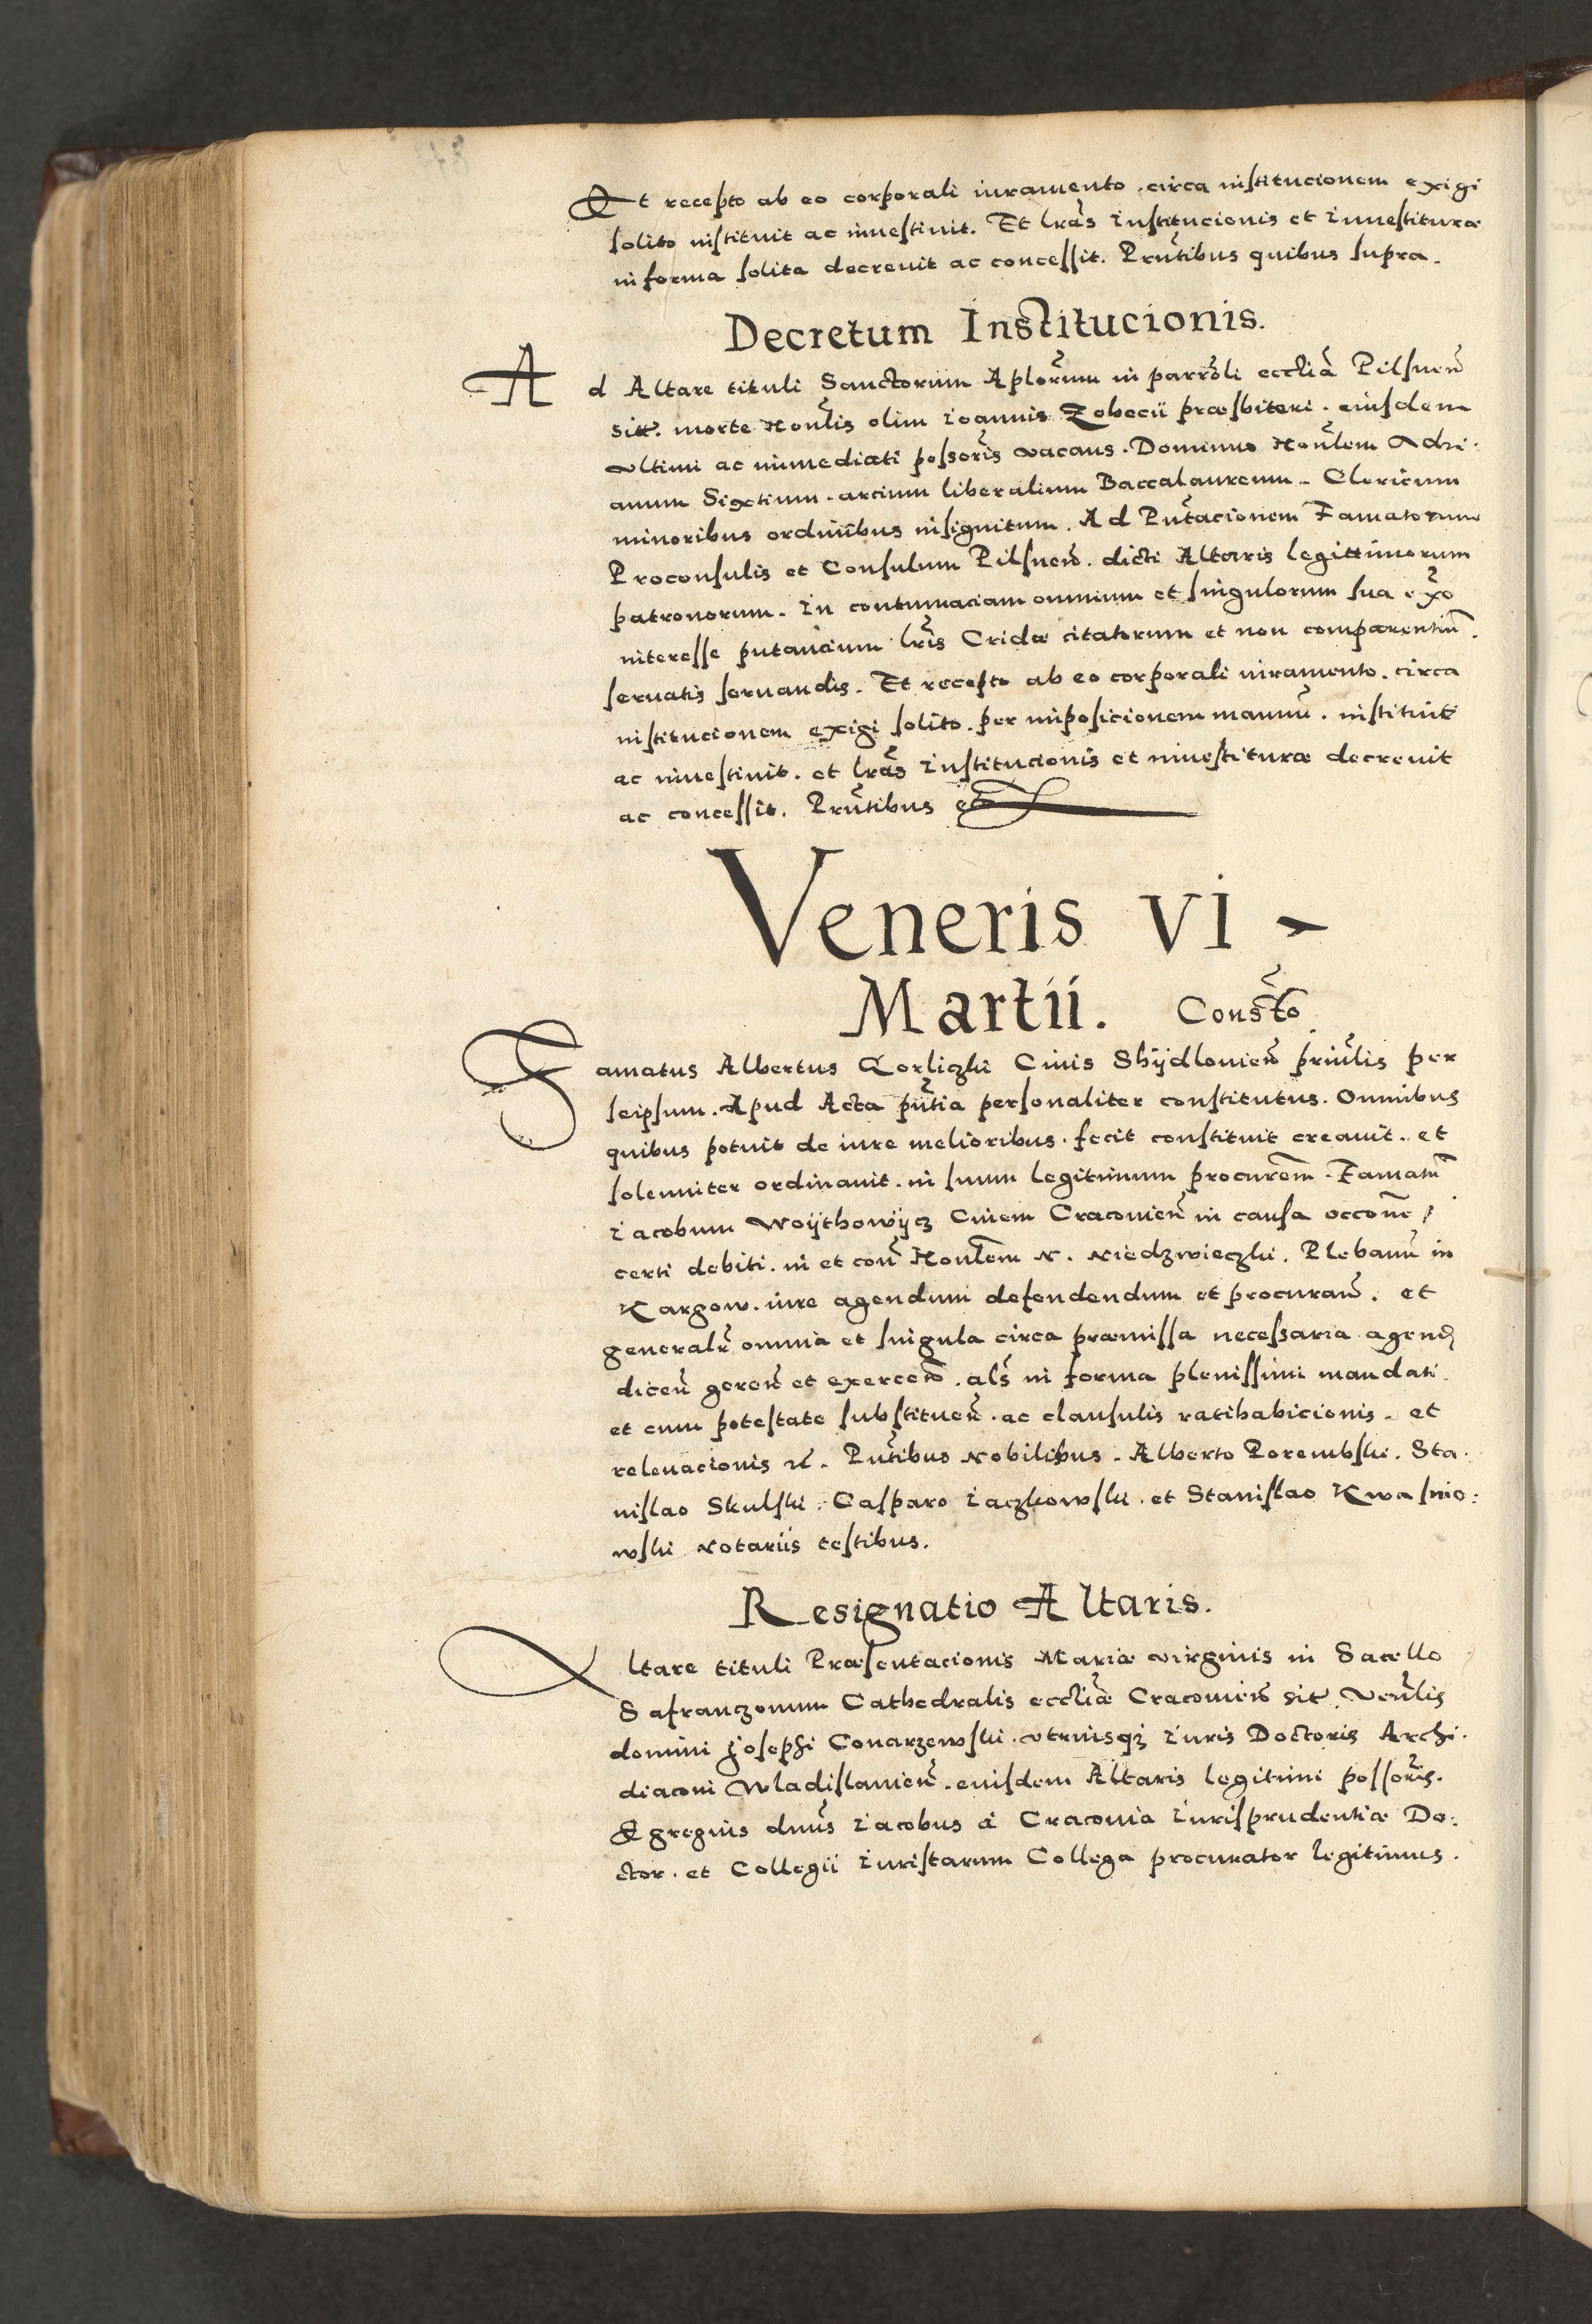 Et recepto ab eo corporali iuramento. circa institucionem exigi
solito instituit ac inuestiuit. Et lr̃as Institucionis et Inuestituræ
in forma solita decreuit ac concessit. Pñtibus quibus supra.
Decretum Institucionis.
Ad Altare tituli Sanctorum Aplõrum in parrõli ecclĩa Pilsneñ
sitt. morte Honlis̃ olim Ioannis Zobecii præsbiteri. eiusdem
vltimi ac immediati possoris̃ vacans. Dominus Honlẽm Adri.
anum Sixtium. arcium liberalium Baccalaureum. Clericum
minoribus ordinibus insignitum. Ad Pñtacionem Famatorum
Proconsulis et Consulum Pilsneñ. dicti Altaris legittimorum
patronorum. In contumaciam omnium et singulorum sua ex̃o
interesse putancium lr̃is Cridæ citatorum et non comparentiũ.
seruatis seruandis. Et recepto ab eo corporali iuramento. circa
institucionem exigi solito. per imposicionem manuũ. instituit
ac inuestiuit. et lr̃as Institucionis et inuestituræ decreuit
ac concessit. Pñtibus etc
Veneris VI
Martii. Consτ̃o
Famatus Albertus Gorliczki Ciuis Shÿdlouieñ priuĩlis per
seipsum. Apud Acta pñtia personaliter constitutus. Omnibus
quibus potuit de iure melioribus. fecit constituit creauit. et
solenniter ordinauit. in suum legitimum procurem̃. Famatũ
Iacobum Woÿthowÿcz Ciuem Cracouieñ in causa occone
certi debiti. in et coñ Honlẽm N. Niedzwieczki. Plebanũ in
Kargow. iure agendum defendendum et procurañ. et
generalr̃ omnia et singula circa præmissa necessaria agend
diceñ gereñ et exerceñ. als̃ in forma plenissimi mandati
et cum potestate substitueñ. ac clausulis ratihabicionis. et
releuacionis etc. Pñtibus Nobilibus. Alberto Porembski. Sta.
nislao Skulski. Casparo Iaczkowski. et Stanislao Kwasnio:
wski Notariis testibus.
Resignatio Altaris.
Altare tituli Præsentacionis Mariæ virginis in Sacello
Safranczonum Cathedralis ecclĩæ Cracouieñ sit. Venlis̃
domini Josephi Conarzewski. vtriusq3 Iuris Doctoris Archi.
diaconi Wladislauieñ. eiusdem Altaris legitimi possoris̃.
Egregius dnũs Iacobus à Cracouia Iurisprudentiæ Do:
ctor. et Collegii Iuristarum Collega procurator legitimus.